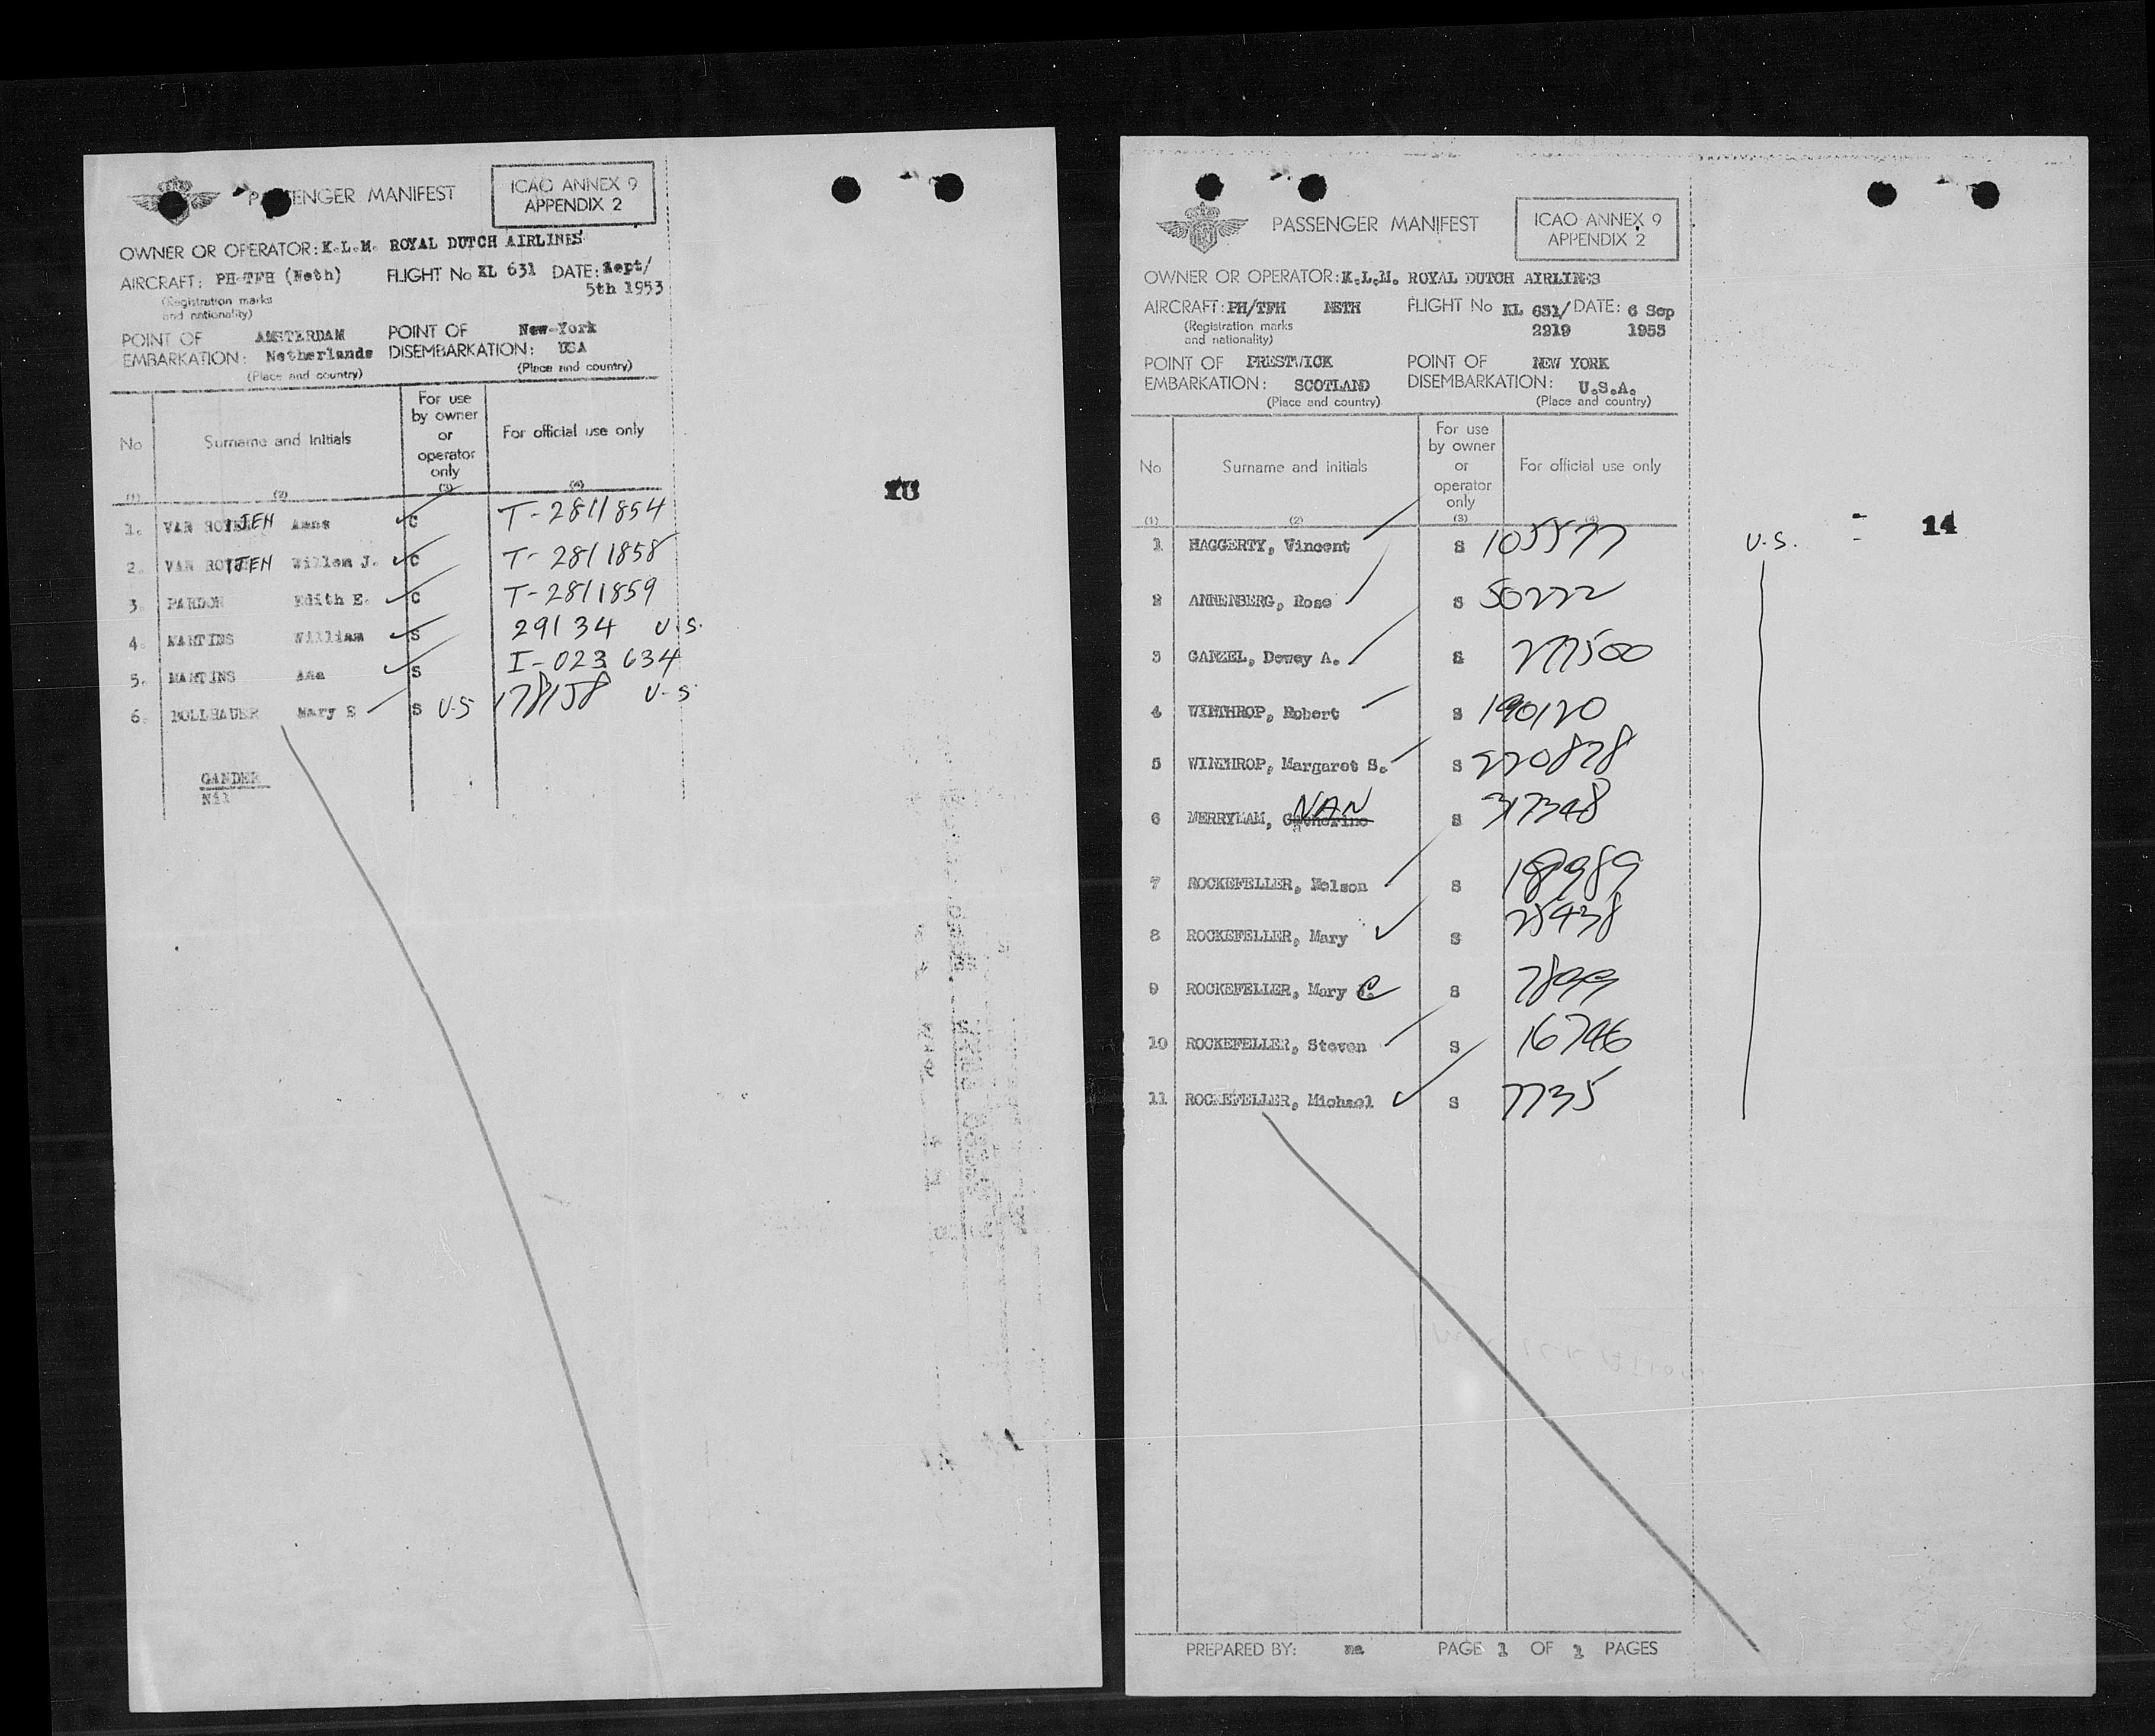 PASSENGER MANIFEST
ICAO ANNEX 9
APPENDIX 2
OWNER OR OPERATOR: K.L.M. ROYAL DUTCH AIRLINES
AIRCRAFT: PH-TFH (Neth) FLIGHT No KL 631 DATE: Sept/
5th 1953
(Registration marks
and nationality)
POINT OF AMSTERDAM POINT OF New-York
EMBARKATION: Netherlands DISEMBARKATION: USA
(Place and country) (Place and country)
No Surname and Initials For use by owner or operator only For official use only
(1) (2) (3) (4)
1. VAN ROIJEN Anne C T-2811854
2. VAN ROIJEN Willem J. C T-2811858
3. PARDON Edith E. C T-2811859
4. MARTINS William S 29134 U.S.
5. MARTINS Ana S I-023634
6. Mary E S U.S 178158 U.S.
GANDER
Nil
PASSENGER MANIFEST
ICAO ANNEX 9
APPENDIX 2
OWNER OR OPERATOR: K.L.M. ROYAL DUTCH AIRLINES
AIRCRAFT: PH/TFH NETH FLIGHT No KL 631/ DATE: 6 Sep
(Registration marks 2219 1953
and nationality)
POINT OF PRESTWICK POINT OF NEW YORK
EMBARKATION: SCOTLAND DISEMBARKATION: U.S.A.
(Place and country) (Place and country)
No Surname and initials For use by owner or operator only For official use only
(1) (2) (3) (4)
14
1 HAGGERTY, Vincent S 105577 U.S.
2 ANNENBERG, Rose S 50222
3 GANZEL, Dewey A. S 277500
4 WINTHROP, Robert S 190120
5 WINTHROP, Margaret S. S 220828
6 MERRYMAM, Catherine NAN S 317348
7 ROCKEFELLER, Nelson S 189989
8 ROCKEFELLER, Mary S 25438
9 ROCKEFELLER, Mary C S 7899
10 ROCKEFELLER, Steven S 16746
11 ROCKEFELLER, Michael S 7735
PREPARED BY: ma PAGE 1 OF 1 PAGES